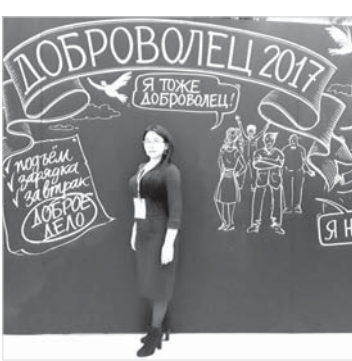 ДОБРОВОЛЕЦ 2017
Я ТОЖЕ
ДОБРОВОЛЕЦ!
подъём
зарядка
завтрак
ДОБРОЕ
ДЕЛО
Я Н